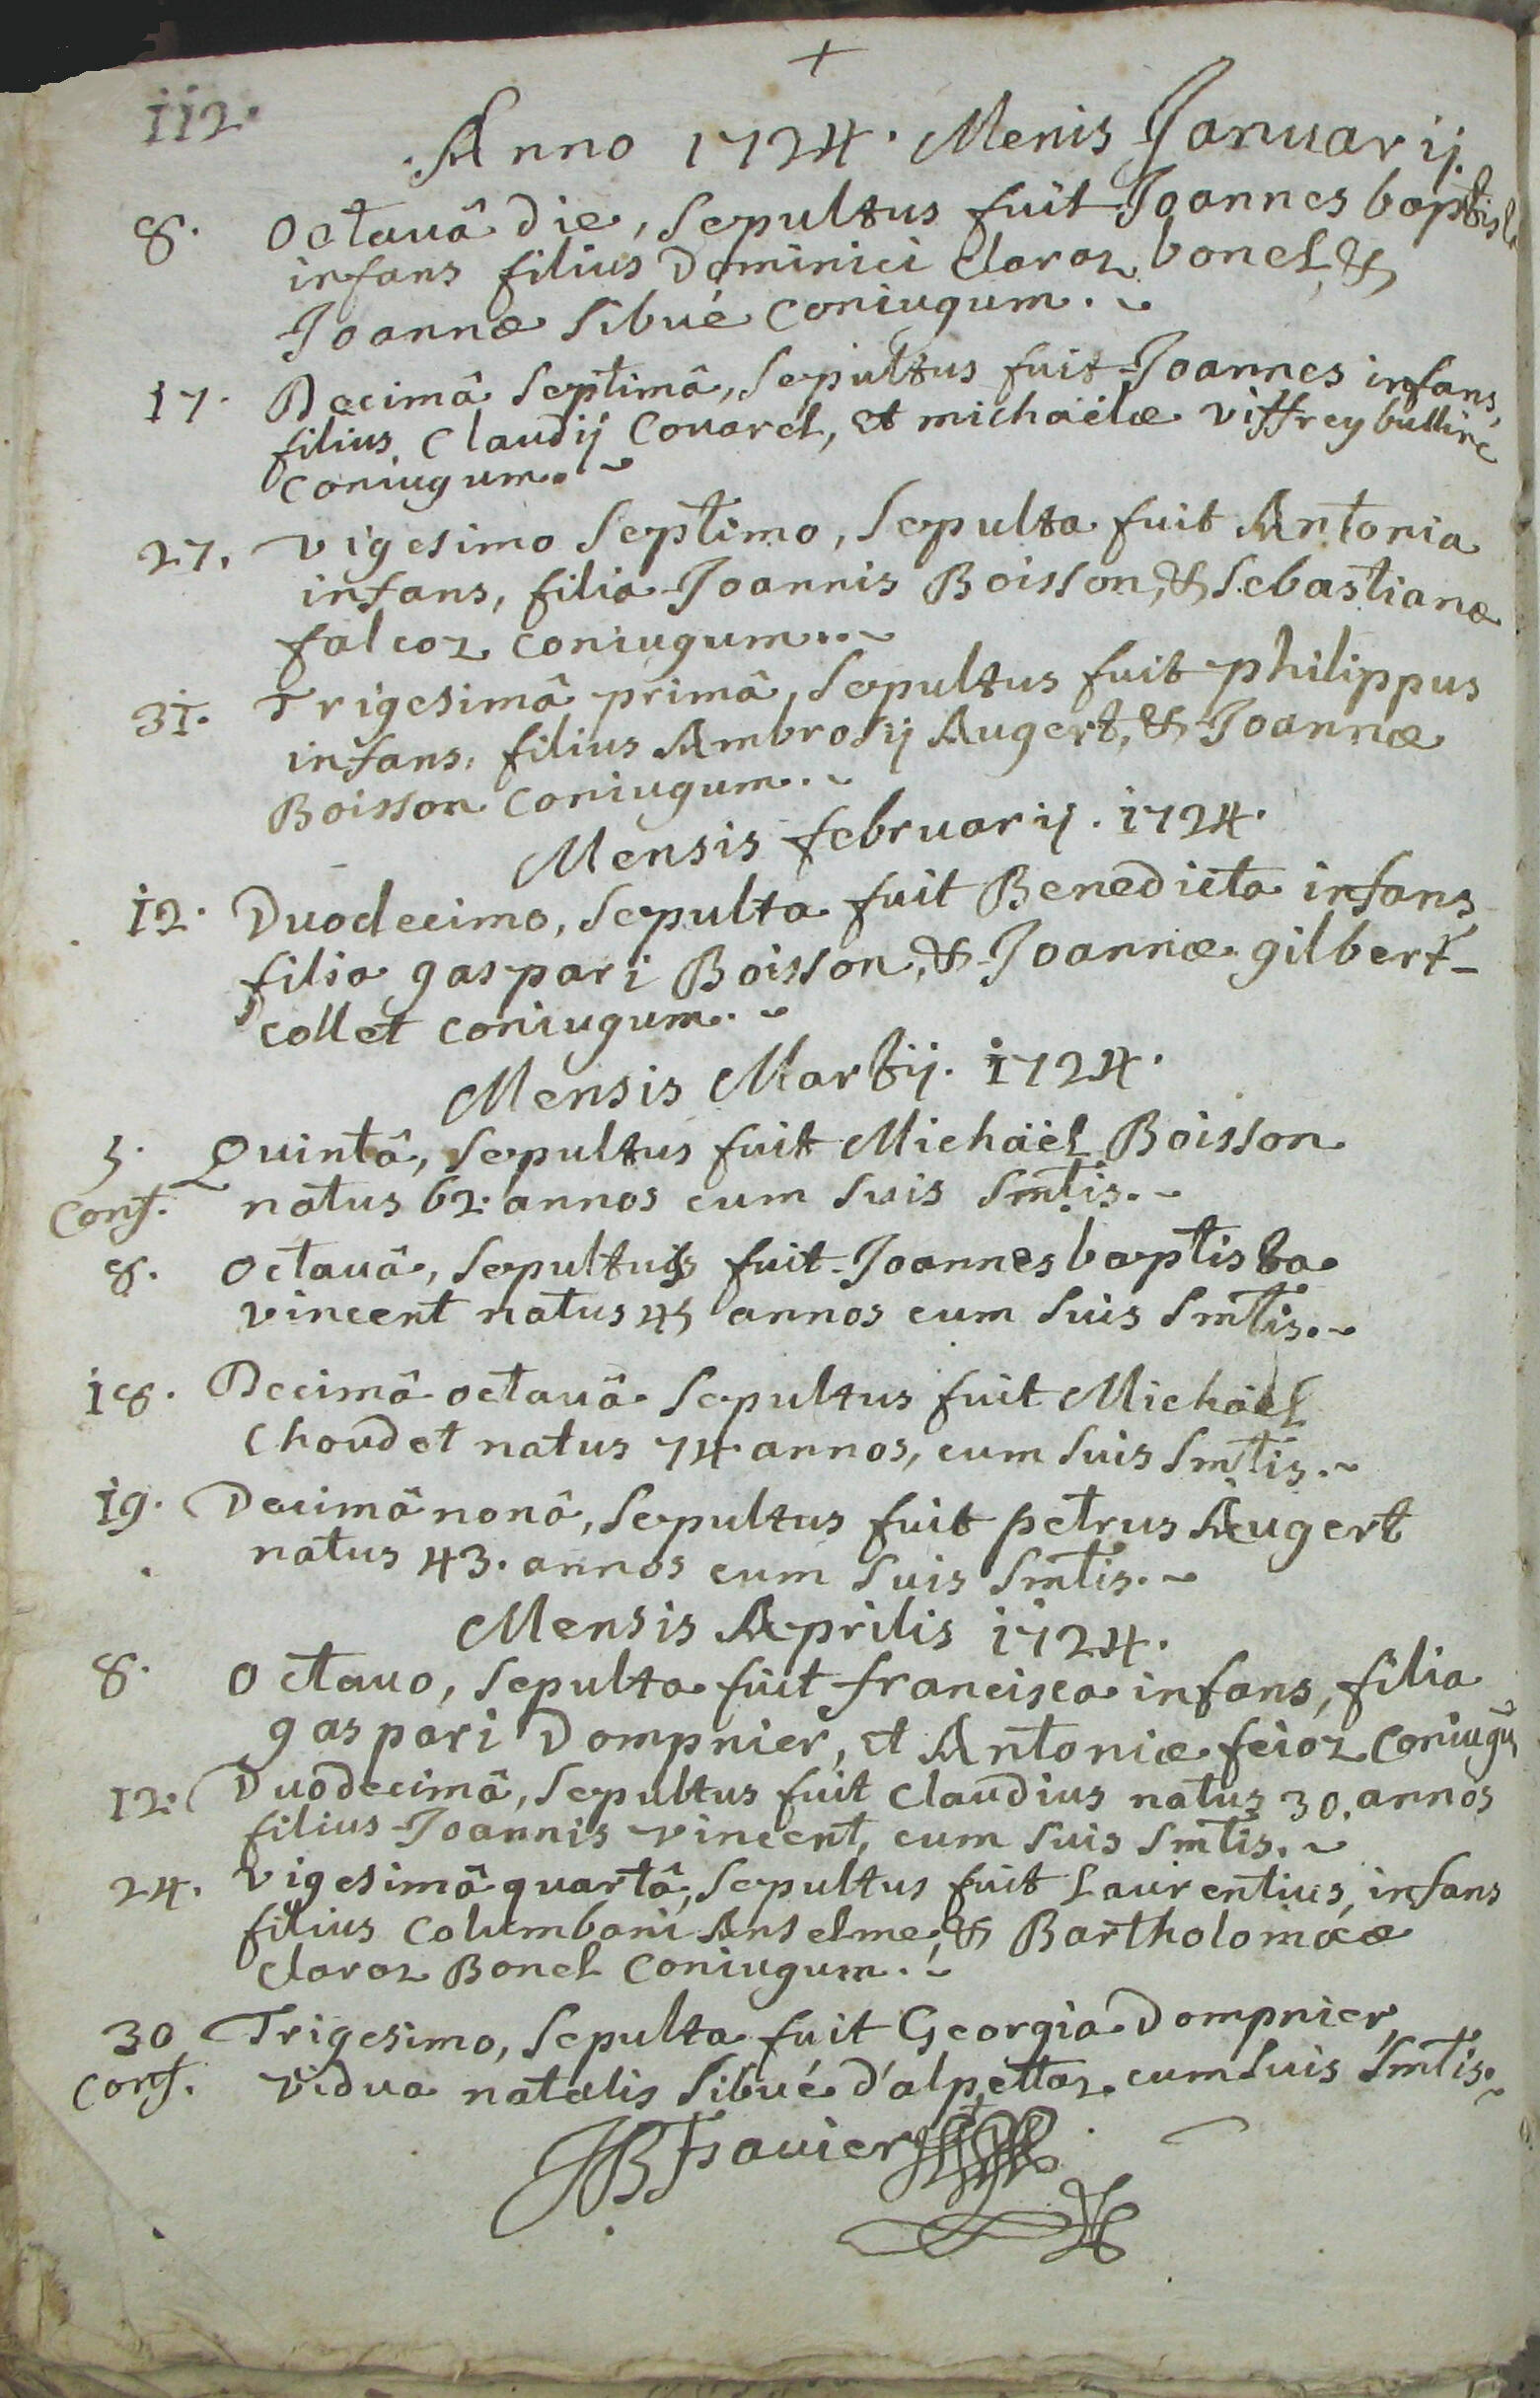 +
112.
Anno 1724. Menis Januarij.
8. Octauâ die, Sepultus fuit Joannes baptista
infans filius Dominici Claraz bonel, &
Joannæ Sibué coniugum.
17. Decimâ Septimâ, Sepultus fuit Joannes infans,
filius Claudij Couarel, et michaëlæ Viffrey bulline
coniugum.
27. Vigesimo Septimo, Sepulta fuit Antonia
infans, filia Joannis Boisson, & Sebastianæ
falcoz coniugum.
31. Trigesimâ primâ, Sepultus fuit philippus
infans, filius Ambrosij Augert, & Joannæ
Boisson coniugum.
Mensis februarij. 1724.
12. Duodecimo, Sepulta fuit Benedicta infans,
filia gaspari Boisson, & Joannæ gilbert-
collet coniugum.
Mensis Martij. 1724.
5. Quintâ, Sepultus fuit Michaël Boisson
Conf. natus 62. annos cum suis Smtis.
8. Octauâ, Sepultus fuit Joannes baptista
vincent natus 45 annos cum suis Smtis.
18. Decimâ octauâ Sepultus fuit Michaël
Choudet natus 74. annos, cum suis Smtis.
19. Decimâ nonâ, Sepultus fuit petrus Augert
natus 43. annos cum suis Smtis.
Mensis Aprilis 1724.
8. Octauo, Sepulta fuit francisca infans, filia
gaspari Dompnier, et Antoniæ feioz Coniugũ
12. Duodecimâ, Sepultus fuit Claudius natus 30. annos
filius Joannis vincent, cum suis Smtis.
24. Vigesimâ quartâ, Sepultus fuit Laurentius, infans
filius Columbani Anselme, & Bartholomææ
Claraz Bonel Coniugum.
30 Trigesimo, Sepulta fuit Georgia Dompnier,
Conf. vidua natalis Sibué d'alpettaz cum suis Smtis.